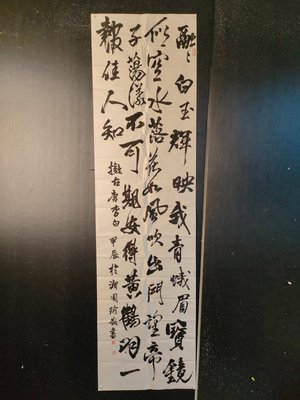 融〻白玉輝映我青蛾眉寶鏡
似空水落花如風吹出門望帝
子蕩漾不可期安得黃鶴羽一
報佳人知
擬古唐李白 甲辰於湘周敬書